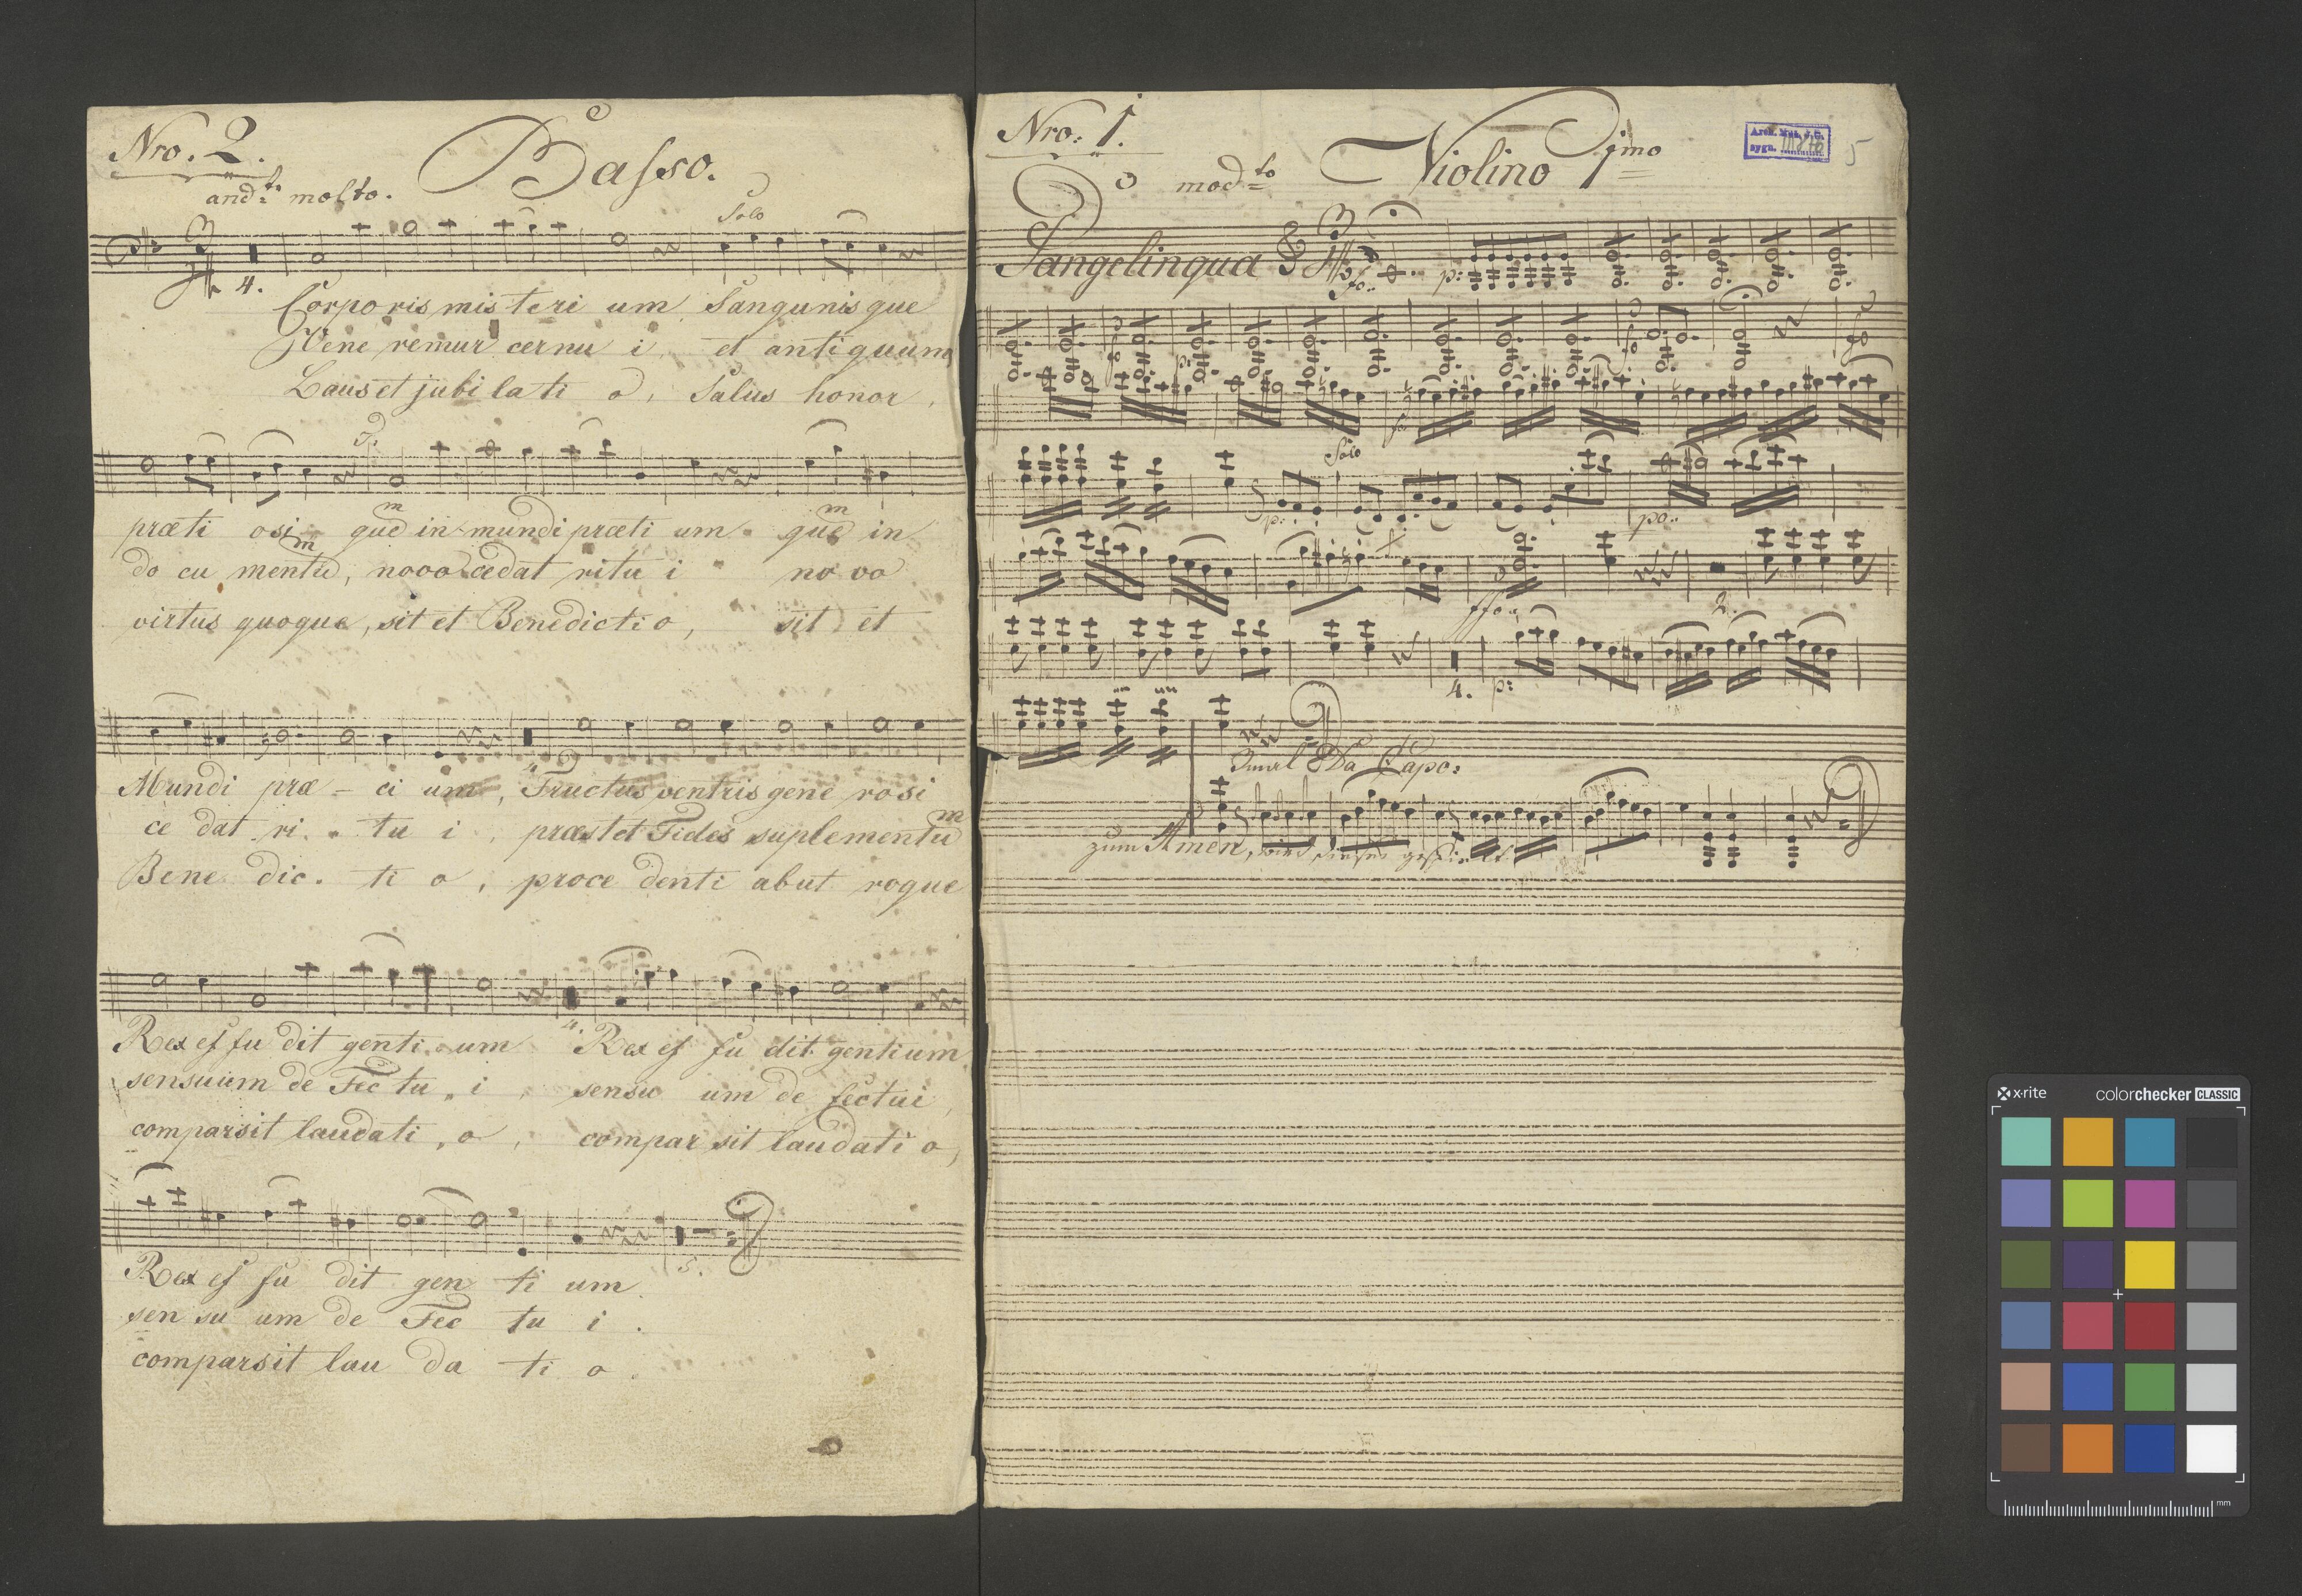 Nro. 2.
Basso.
andte molto.
Solo
4.
Corporis misteri um Sangunisque
Vene remur cernu i, et antiquum
Laus et jubi lati o, Salus honor,
præti osi quem in mundi præti um quem in
do cu mentum, novo cedat ritu i novo
virtus quoque, sit et Benedicti o, sit et
Mundi præ - ci um, Fructus ventris gene rosi
ce dat ri tu i, præstet Fides suplementum
Bene dic ti o, proce denti abut roque
4.
Rex ef fu dit genti um Rex ef fu dit gentium
sensuum de Fec tu i, sensu um de fectui,
comparsit laudati o, compar sit laudati o,
5.
Rex ef fu dit gen ti um.
sen su um de Fec tu i.
comparsit lau da ti o.
Nro: 1.
Violino 1mo
Arch. Muz. J. G.
sygn.
5
modto
Pangelingua
fo..
p:
fo
p:
fo
Solo
p:
po..
ffo..
2.
4.
p:
3mal Da Capo:
zum Amen,